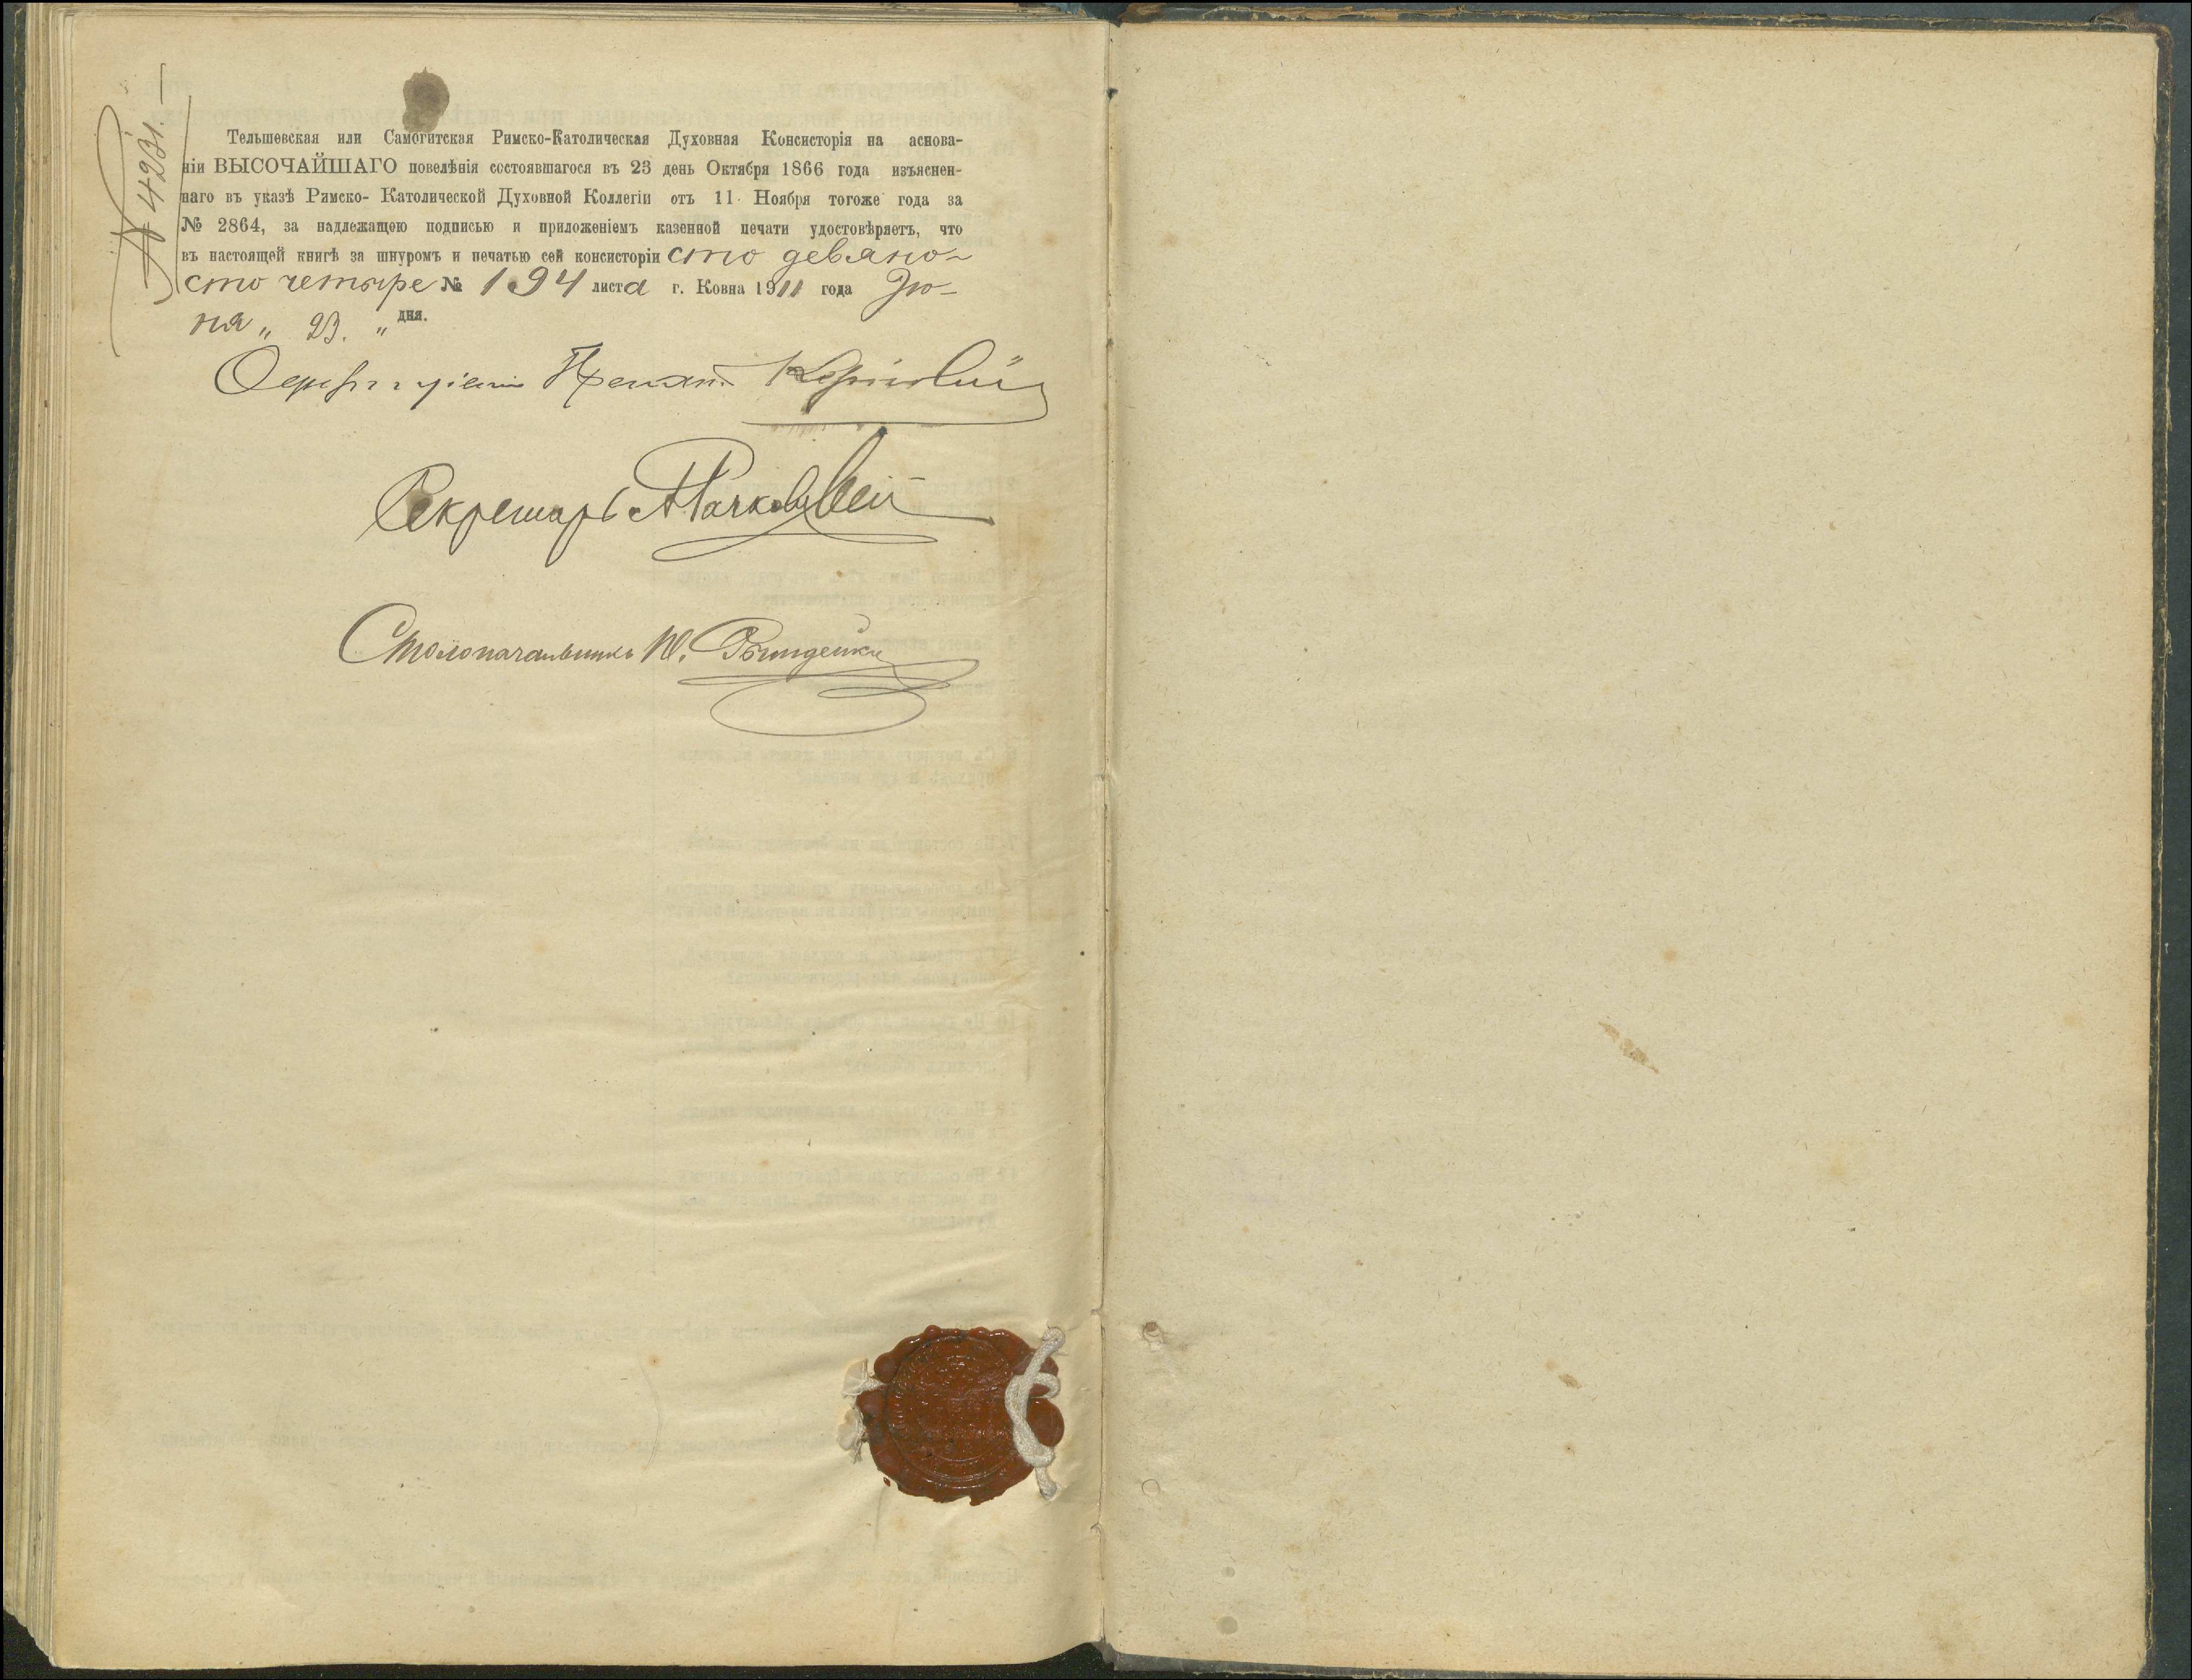 № 4231.
Тельшевская или Самогитская Римско-Католическая Духовная Консисторія на аснова-
ніи ВЫСОЧАЙШАГО повелѣнія состоявшагося въ 23 день Октября 1866 года изъяснен-
наго въ указѣ Римско- Католической Духовной Коллегіи отъ 11 Ноября тогоже года за
№ 2864, за надлежащею подписью и приложеніемъ казенной печати удостовѣряетъ, что
въ настоящей книгѣ за шнуромъ и печатью сей консисторіи сто девяно-
сто четыре № 194 листа г. Ковна 1911 года Iю-
ня „ 23. „ дня.
Секретарь
Столоначальникъ Ю.